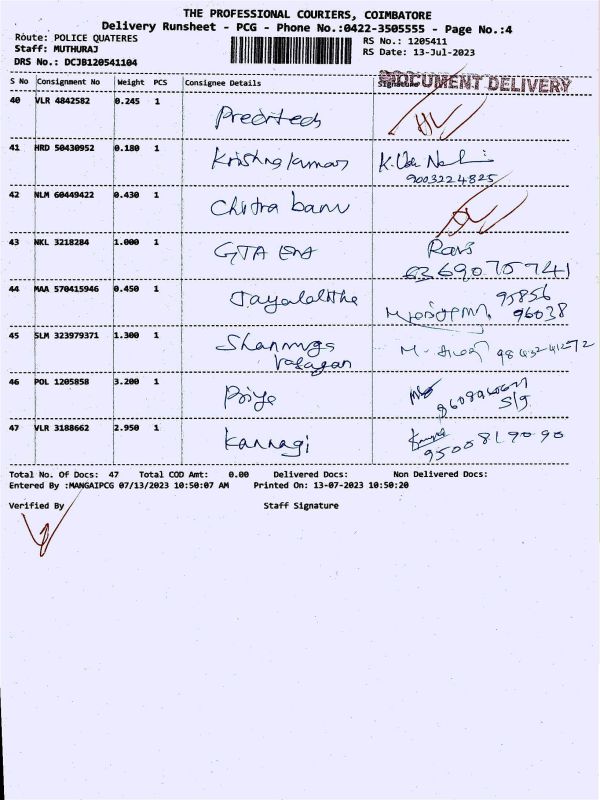 THE PROFESSIONAL COURIERS, COIMBATORE
Delivery Runsheet - PCG - Phone No.:0422-3505555 - Page No.:4
Route: POLICE QUATERES
RS No.: 1205411
Staff: MUTHURAJ
RS Date: 13-Jul-2023
DRS No.: DCJB120541104
S No Consignment No Weight PCS Consignee Details Signature
DOCUMENT DELIVERY
40 VLR 4842582 0.245 1
41 HRD 50430952 0.180 1 Krishna kumar
9003224825
42 NLM 60449422 0.430 1 Chitra banu
43 NKL 3218284 1.000 1 GTA Ravi
6369070741
44 MAA 570415946 0.450 1 Jayalalitha 95856
96038
45 SLM 323979371 1.300 1 Shanmuga
46 POL 1205858 3.200 1 Priya
47 VLR 3188662 2.950 1 Kannagi
9500819090
Total No. Of Docs: 47 Total COD Amt: 0.00 Delivered Docs: Non Delivered Docs:
Entered By :MANGAIPCG 07/13/2023 10:50:07 AM Printed On: 13-07-2023 10:50:20
Verified By Staff Signature